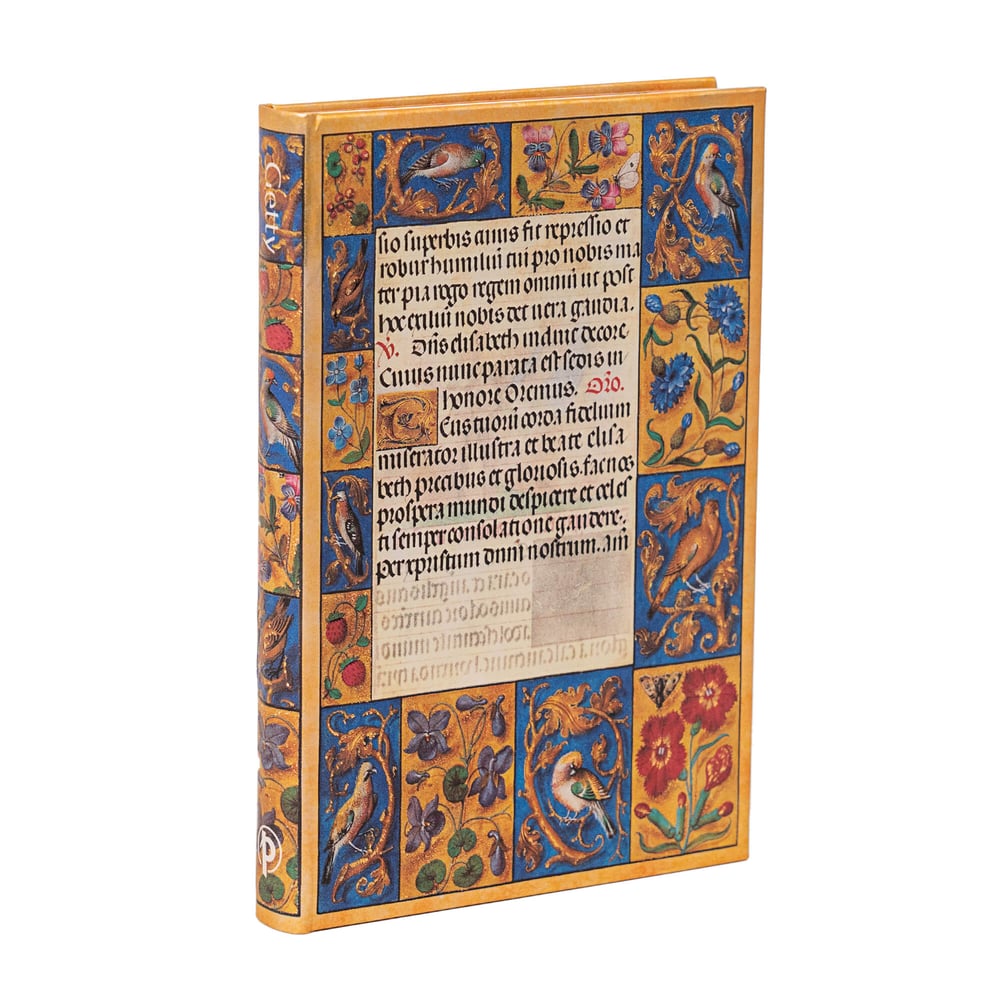 Getty
sio superbis cuius fit repressio et
robur humiliū cui pro nobis ma
ter pia rogo regem omniū ut post
hoc exiliū nobis det uera gaudia.
V. Ora elisabeth indue decore.
Cuius nunc parata est sedis in
honore Oremus. Oŕo.
Deus tuorū corda fidelium
miserator illustra et beate elisa
beth precibus et gloriosis. fac nos
prospera mundi despicere et celes
ti semper consolatione gaudere.
per xpristum dnm̄ nostrum. am̄